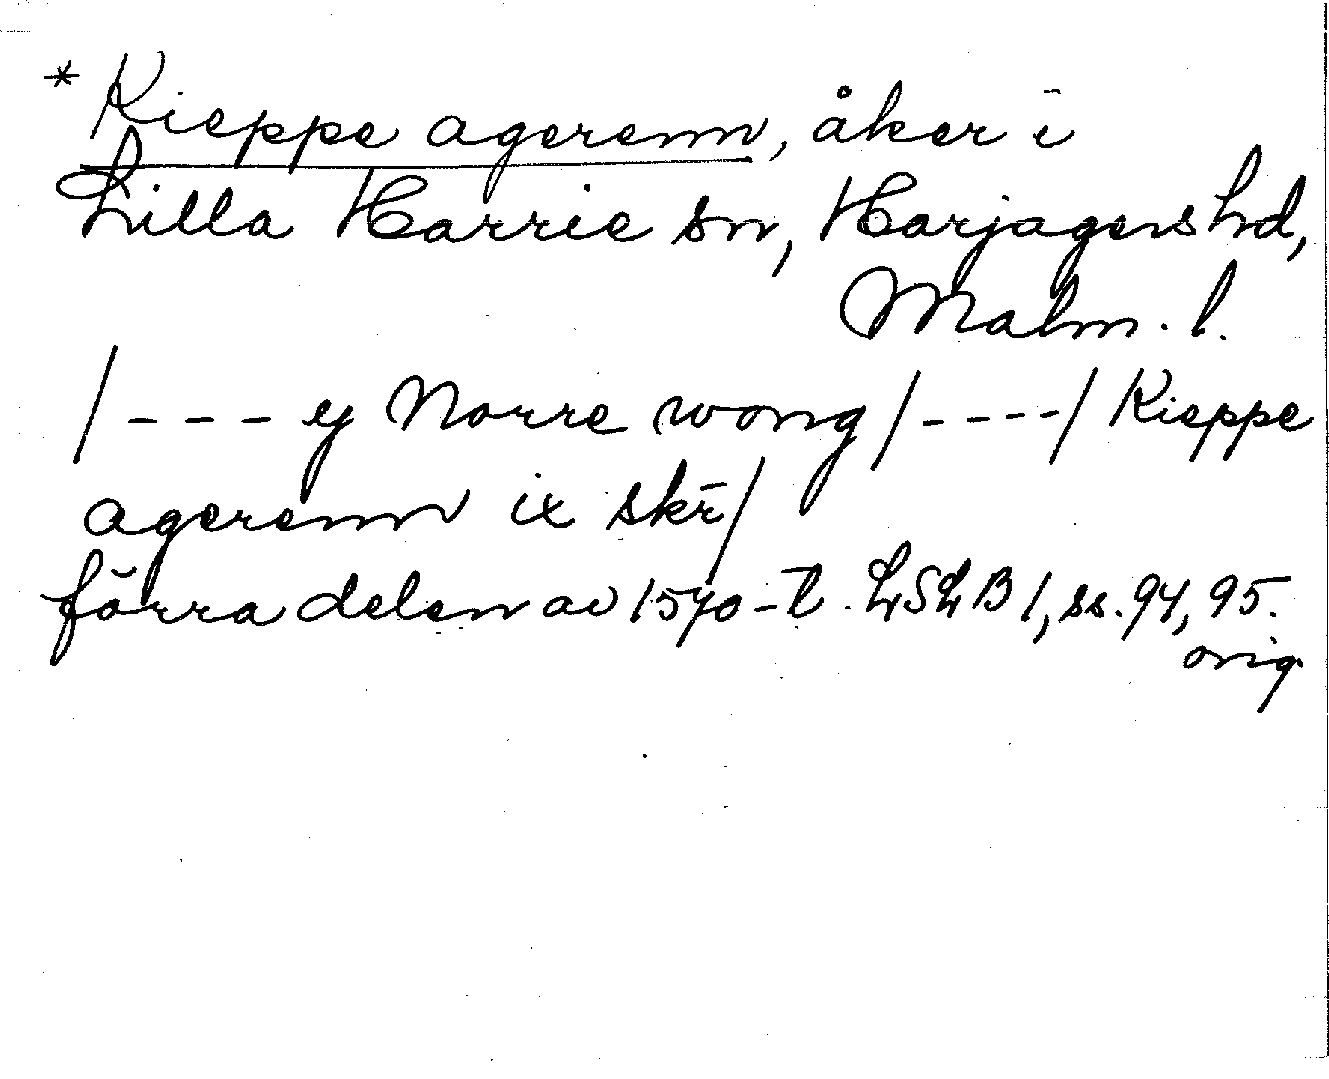 * Kieppe agerenn, åker i
Lilla Harrie sn, Harjagers hd,
Malm. l.
/ - - - ey Norre wong / - - - - / Kieppe
agerenn ix skr̄ /
förra delen av 1570-t. LSLB 1, ss. 94, 95.
orig.